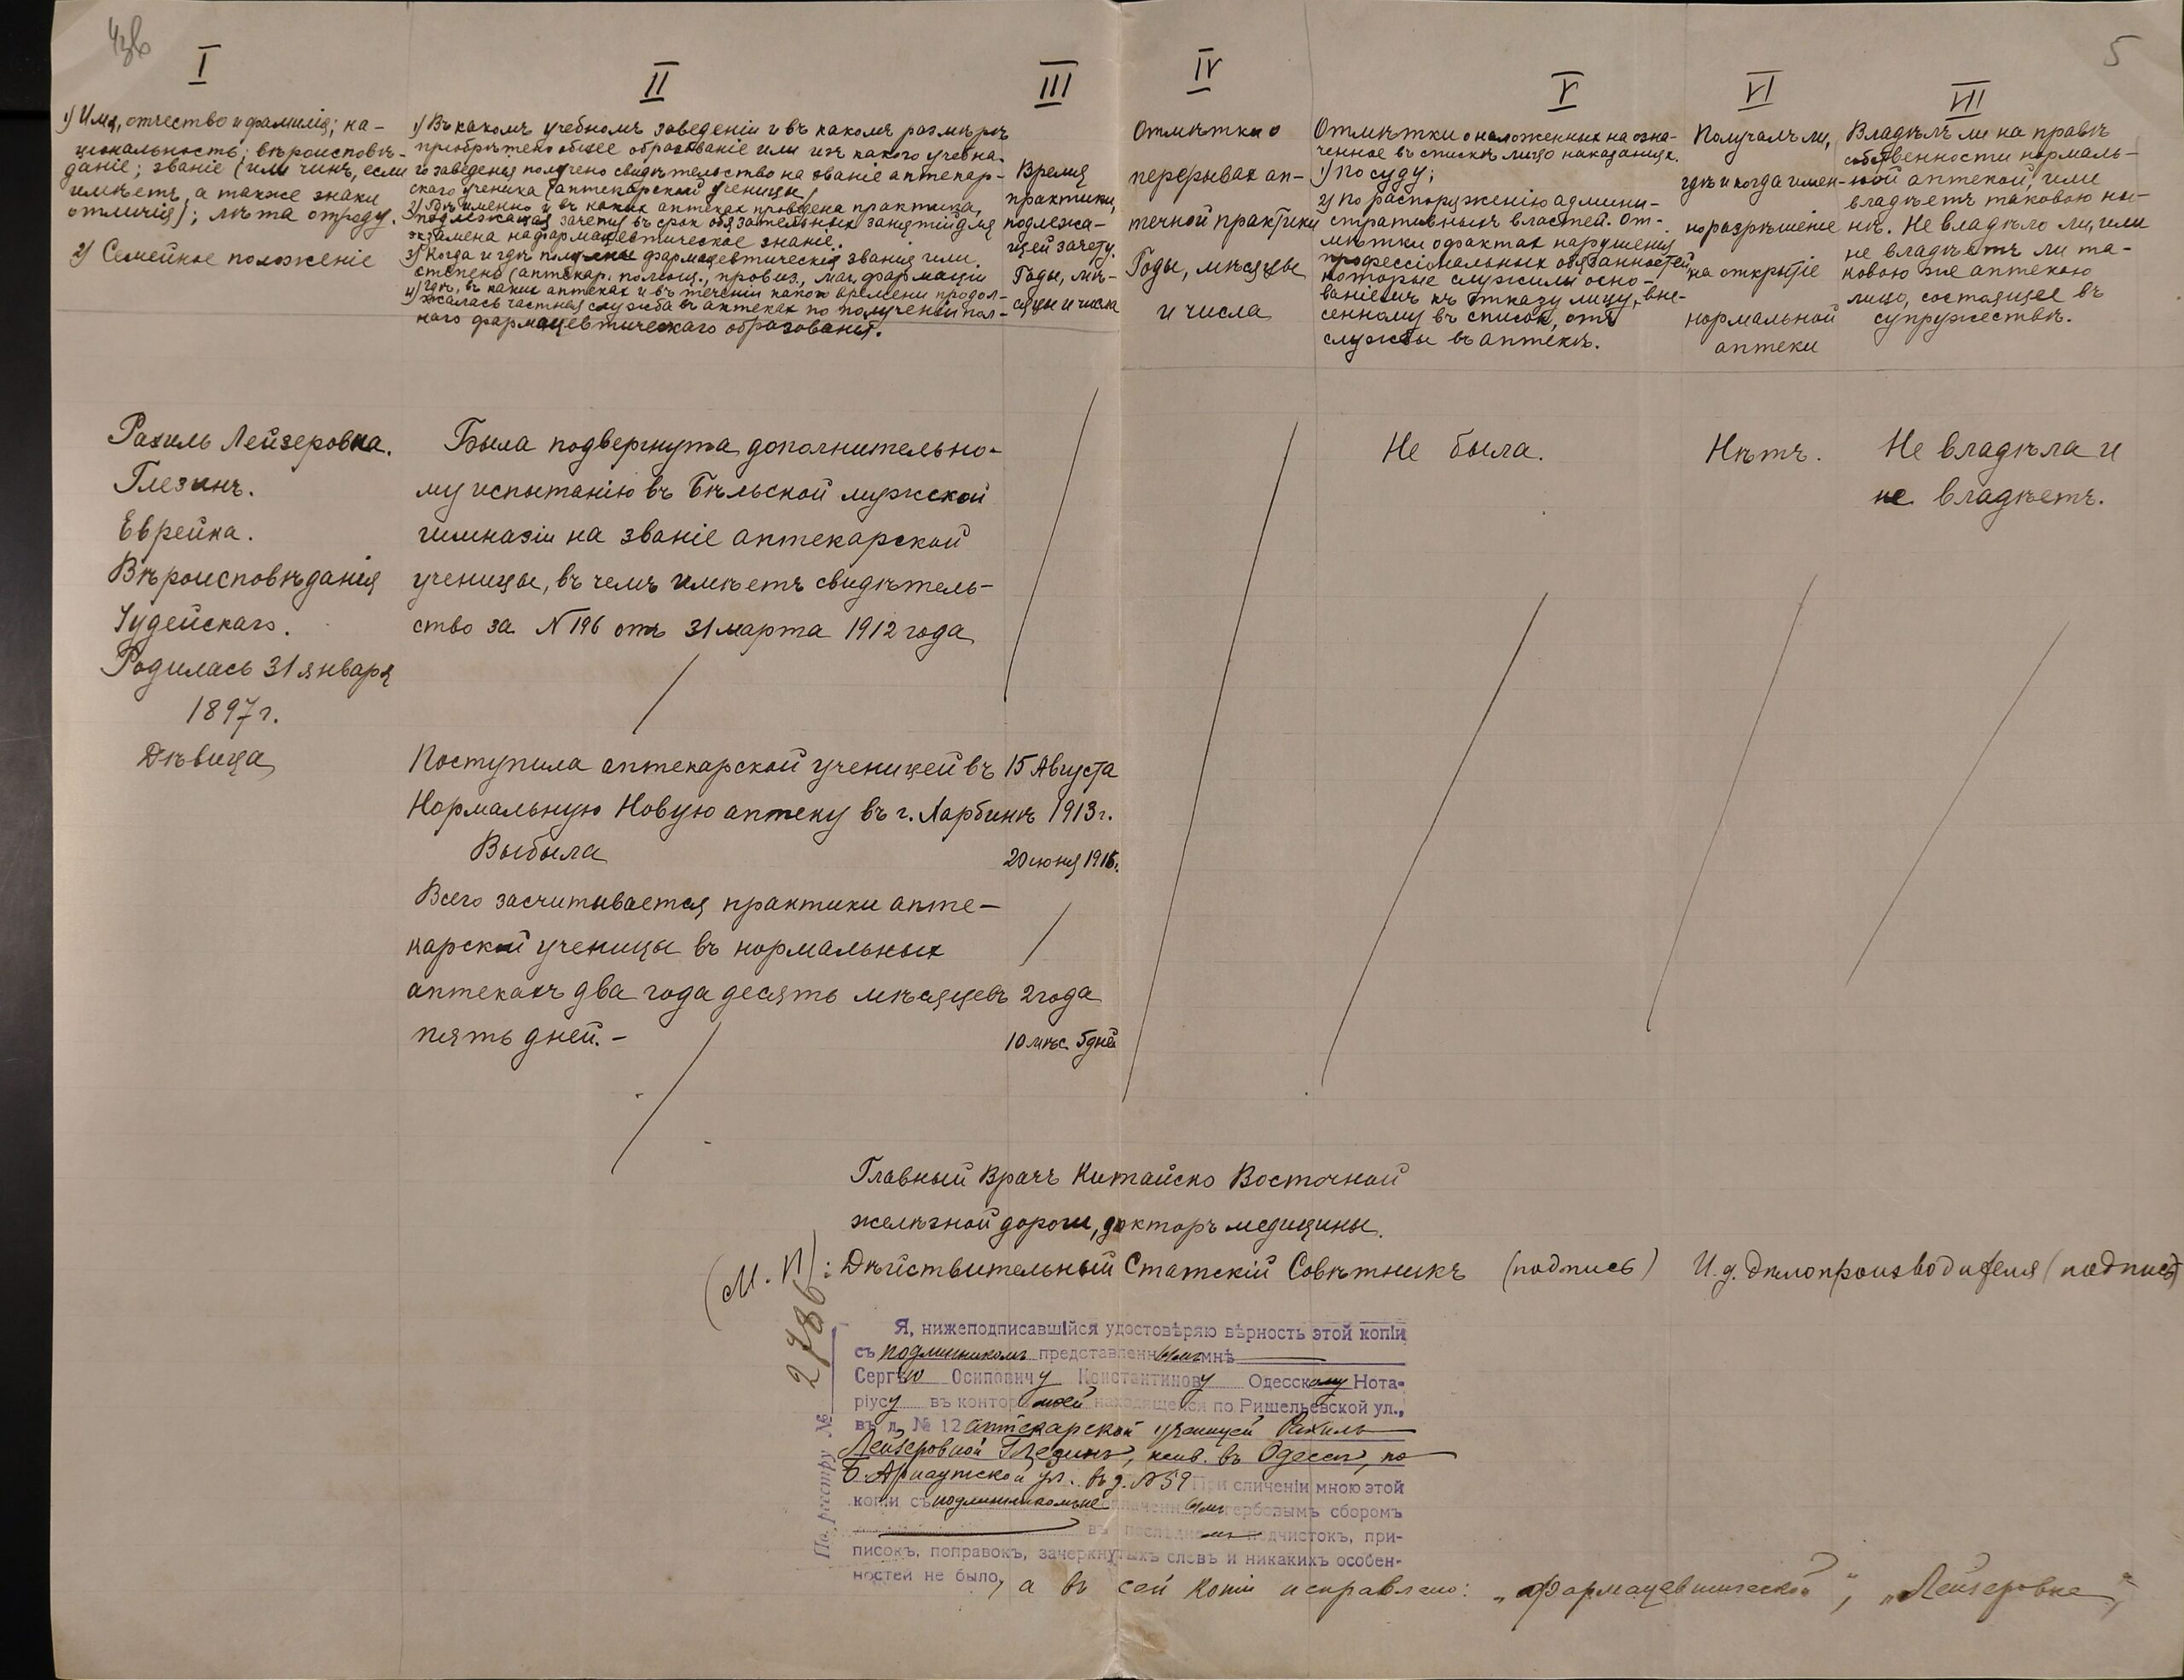 5
I
1) Имя, отчество и фамилія; на-
ціональность; вѣроисповѣ-
даніе; званіе (или чинъ, если
имѣетъ, а также знаки
отличія); лѣта отроду.
2) Семейное положеніе
II
1) Въ какомъ учебномъ заведеніи и въ какомъ размѣрѣ
пріобрѣтено общее образованіе или изъ какого учебна-
го заведенія получено свидѣтельство на званіе аптекар-
скаго ученика (аптекарской ученицы)
2) Гдѣ именно и въ какихъ аптекахъ проведена практика,
подлежащая зачету въ срок обязательных занятій для
экзамена на фармацевтическое званіе.
3) Когда и гдѣ получены фармацевтическія званія или
степени (аптекар. помощ., провиз., маг. фармаціи
4) Гдѣ, въ каких аптеках и въ теченіи какого времени продол-
жалась частная служба въ аптеках по полученіи пол-
наго фармацевтическаго образованія.
III
Время
практики,
подлежа-
щей зачету.
Годы, мѣ-
сяцы и числа
IV
Отмѣтки о
перерывах ап-
течной практики
Годы, мѣсяцы
и числа
V
Отмѣтки о наложенных на озна-
ченное въ спискѣ лицо наказаніях.
1) По суду;
2) По распоряженію админи-
стративных властей. От-
мѣтки о фактах нарушенія
профессіональных обязанностей
которые служили осно-
ваніемъ къ отказу лицу, вне-
сенному въ список, отъ
службы въ аптекѣ.
VI
Получалъ ли,
гдѣ и когда имен-
но разрѣшеніе
на открытіе
нормальной
аптеки
VII
Владѣлъ ли на правѣ
собственности нормаль-
ной аптекой, или
владѣетъ таковою ны-
нѣ. Не владѣло ли, или
не владѣетъ ли та-
ковою же аптекою
лицо, состоящее въ
супружествѣ.
Рахиль Лейзеровна.
Глезинъ.
Еврейка.
Вѣроисповѣданія
Іудейскаго.
Родилась 31 января
1897 г.
Дѣвица
Была подвергнута дополнительно-
му испытанію въ Бѣльской мужской
гимназіи на званіе аптекарской
ученицы, въ чемъ имѣетъ свидѣтель-
ство за N 196 отъ 31 марта 1912 года
Не была.
Нѣтъ.
Не владѣла и
не владѣетъ.
Поступила аптекарской ученицей въ 15 Августа
Нормальную Новую аптеку въ г. Харбинѣ 1913 г.
Выбыла 20 іюня
Всего засчитывается практики апте-
карской ученицы въ нормальных
аптекахъ два года десять мѣсяцевъ 2 года
пять дней. - 10 мѣс. 5 дней
Главный Врачъ Китайско Восточной
желѣзной дороги, докторъ медицины.
(М. П.): Дѣйствительный Статскій Совѣтникъ (подпись) И. д. Дѣлопроизводителя (подпись)
По реестру № 2786
Я, нижеподписавшійся удостовѣряю вѣрность этой копіи
съ подлинникомъ представленнымъ мнѣ
Сергѣю Осиповичу Константинову Одесскому Нота-
ріусу въ конторѣ моей находящейся по Ришельевской ул.,
въ д. № 12 аптекарской ученицей Рахиль
Лейзеровной Глезинъ, жив. въ Одессѣ, по
Б. Арнаутской ул. въ д. N 59 При сличеніи мною этой
копіи съ подлинникомъ не оплаченнымъ гербовымъ сборомъ
въ послѣднемъ подчистокъ, при-
писокъ, поправокъ, зачеркнутыхъ словъ и никакихъ особен-
ностей не было, а въ сей копіи исправлено: „фармацевтической“, „Лейзеровна“,